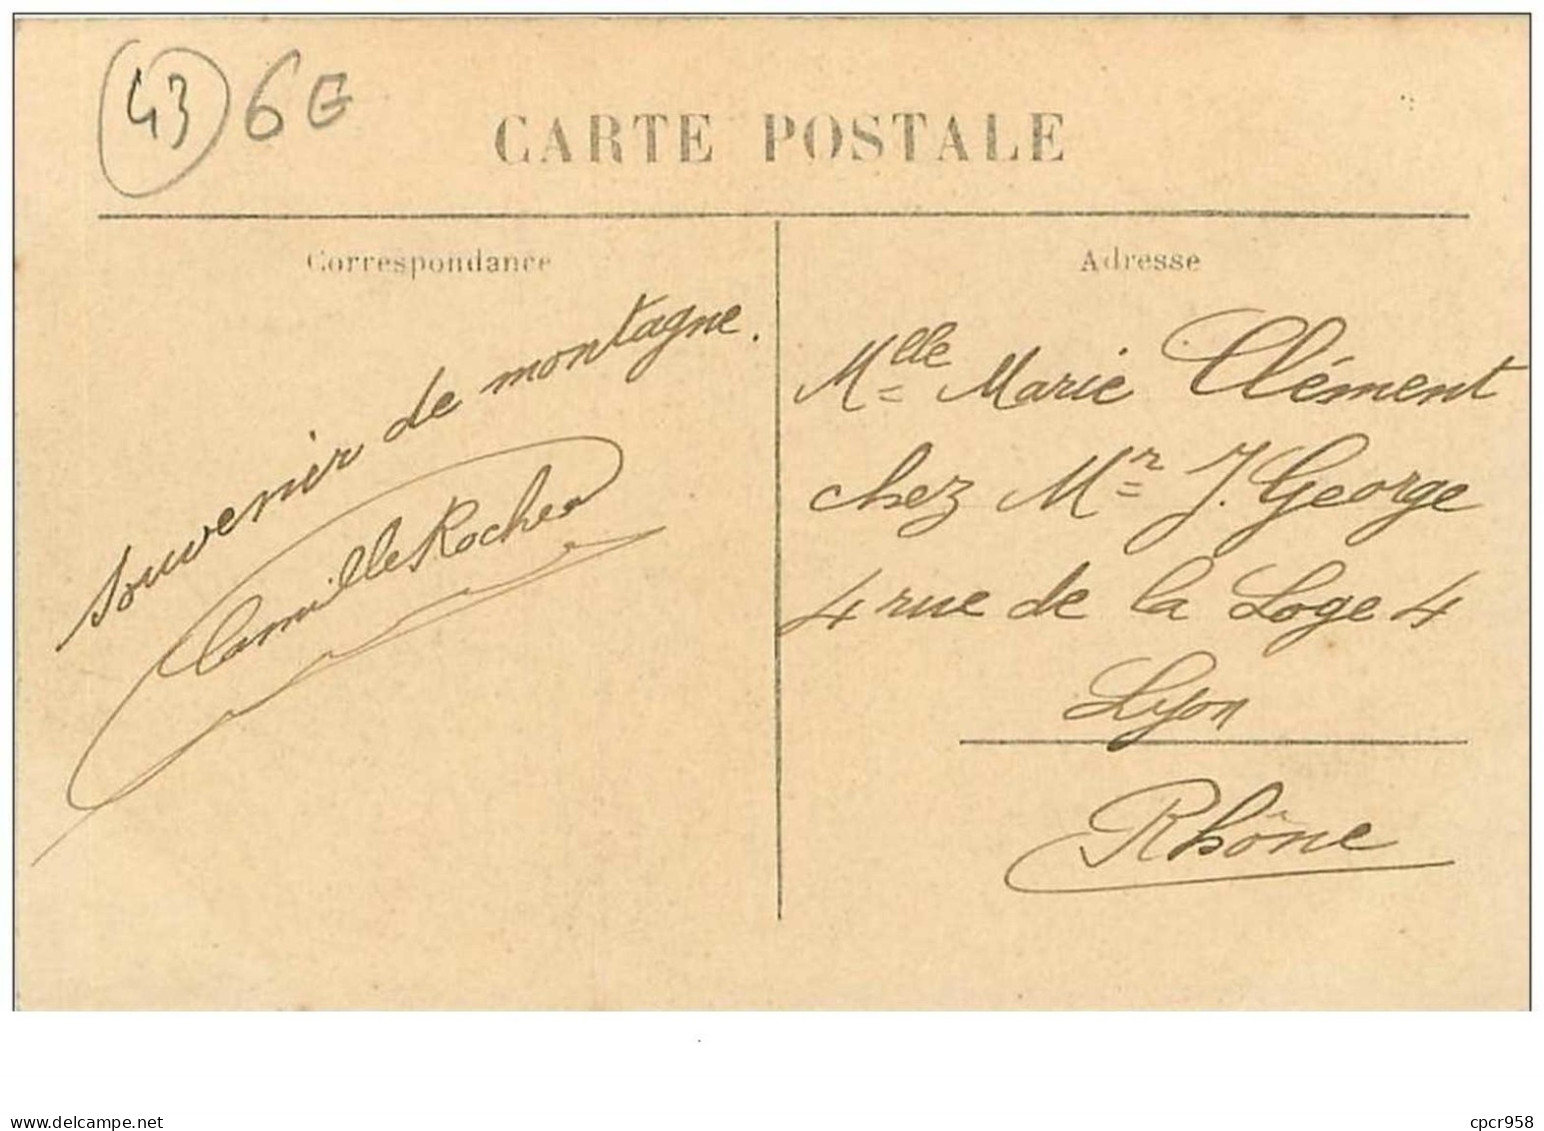 43 6E
CARTE POSTALE
Correspondance
Souvenir de montagne.
Camille Rocher
Adresse
Mlle Marie Clément
chez Mr J. George
4 rue de la Loge 4
Lyon
Rhône
www.delcampe.net
cpcr958